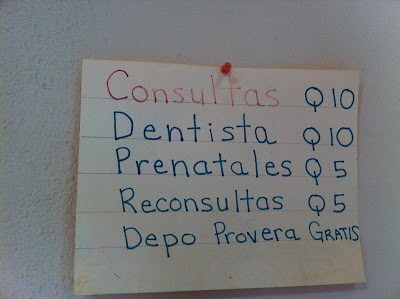 Consultas Q10
Dentista Q10
Prenatales Q5
Reconsultas Q5
Depo Provera GRATIS